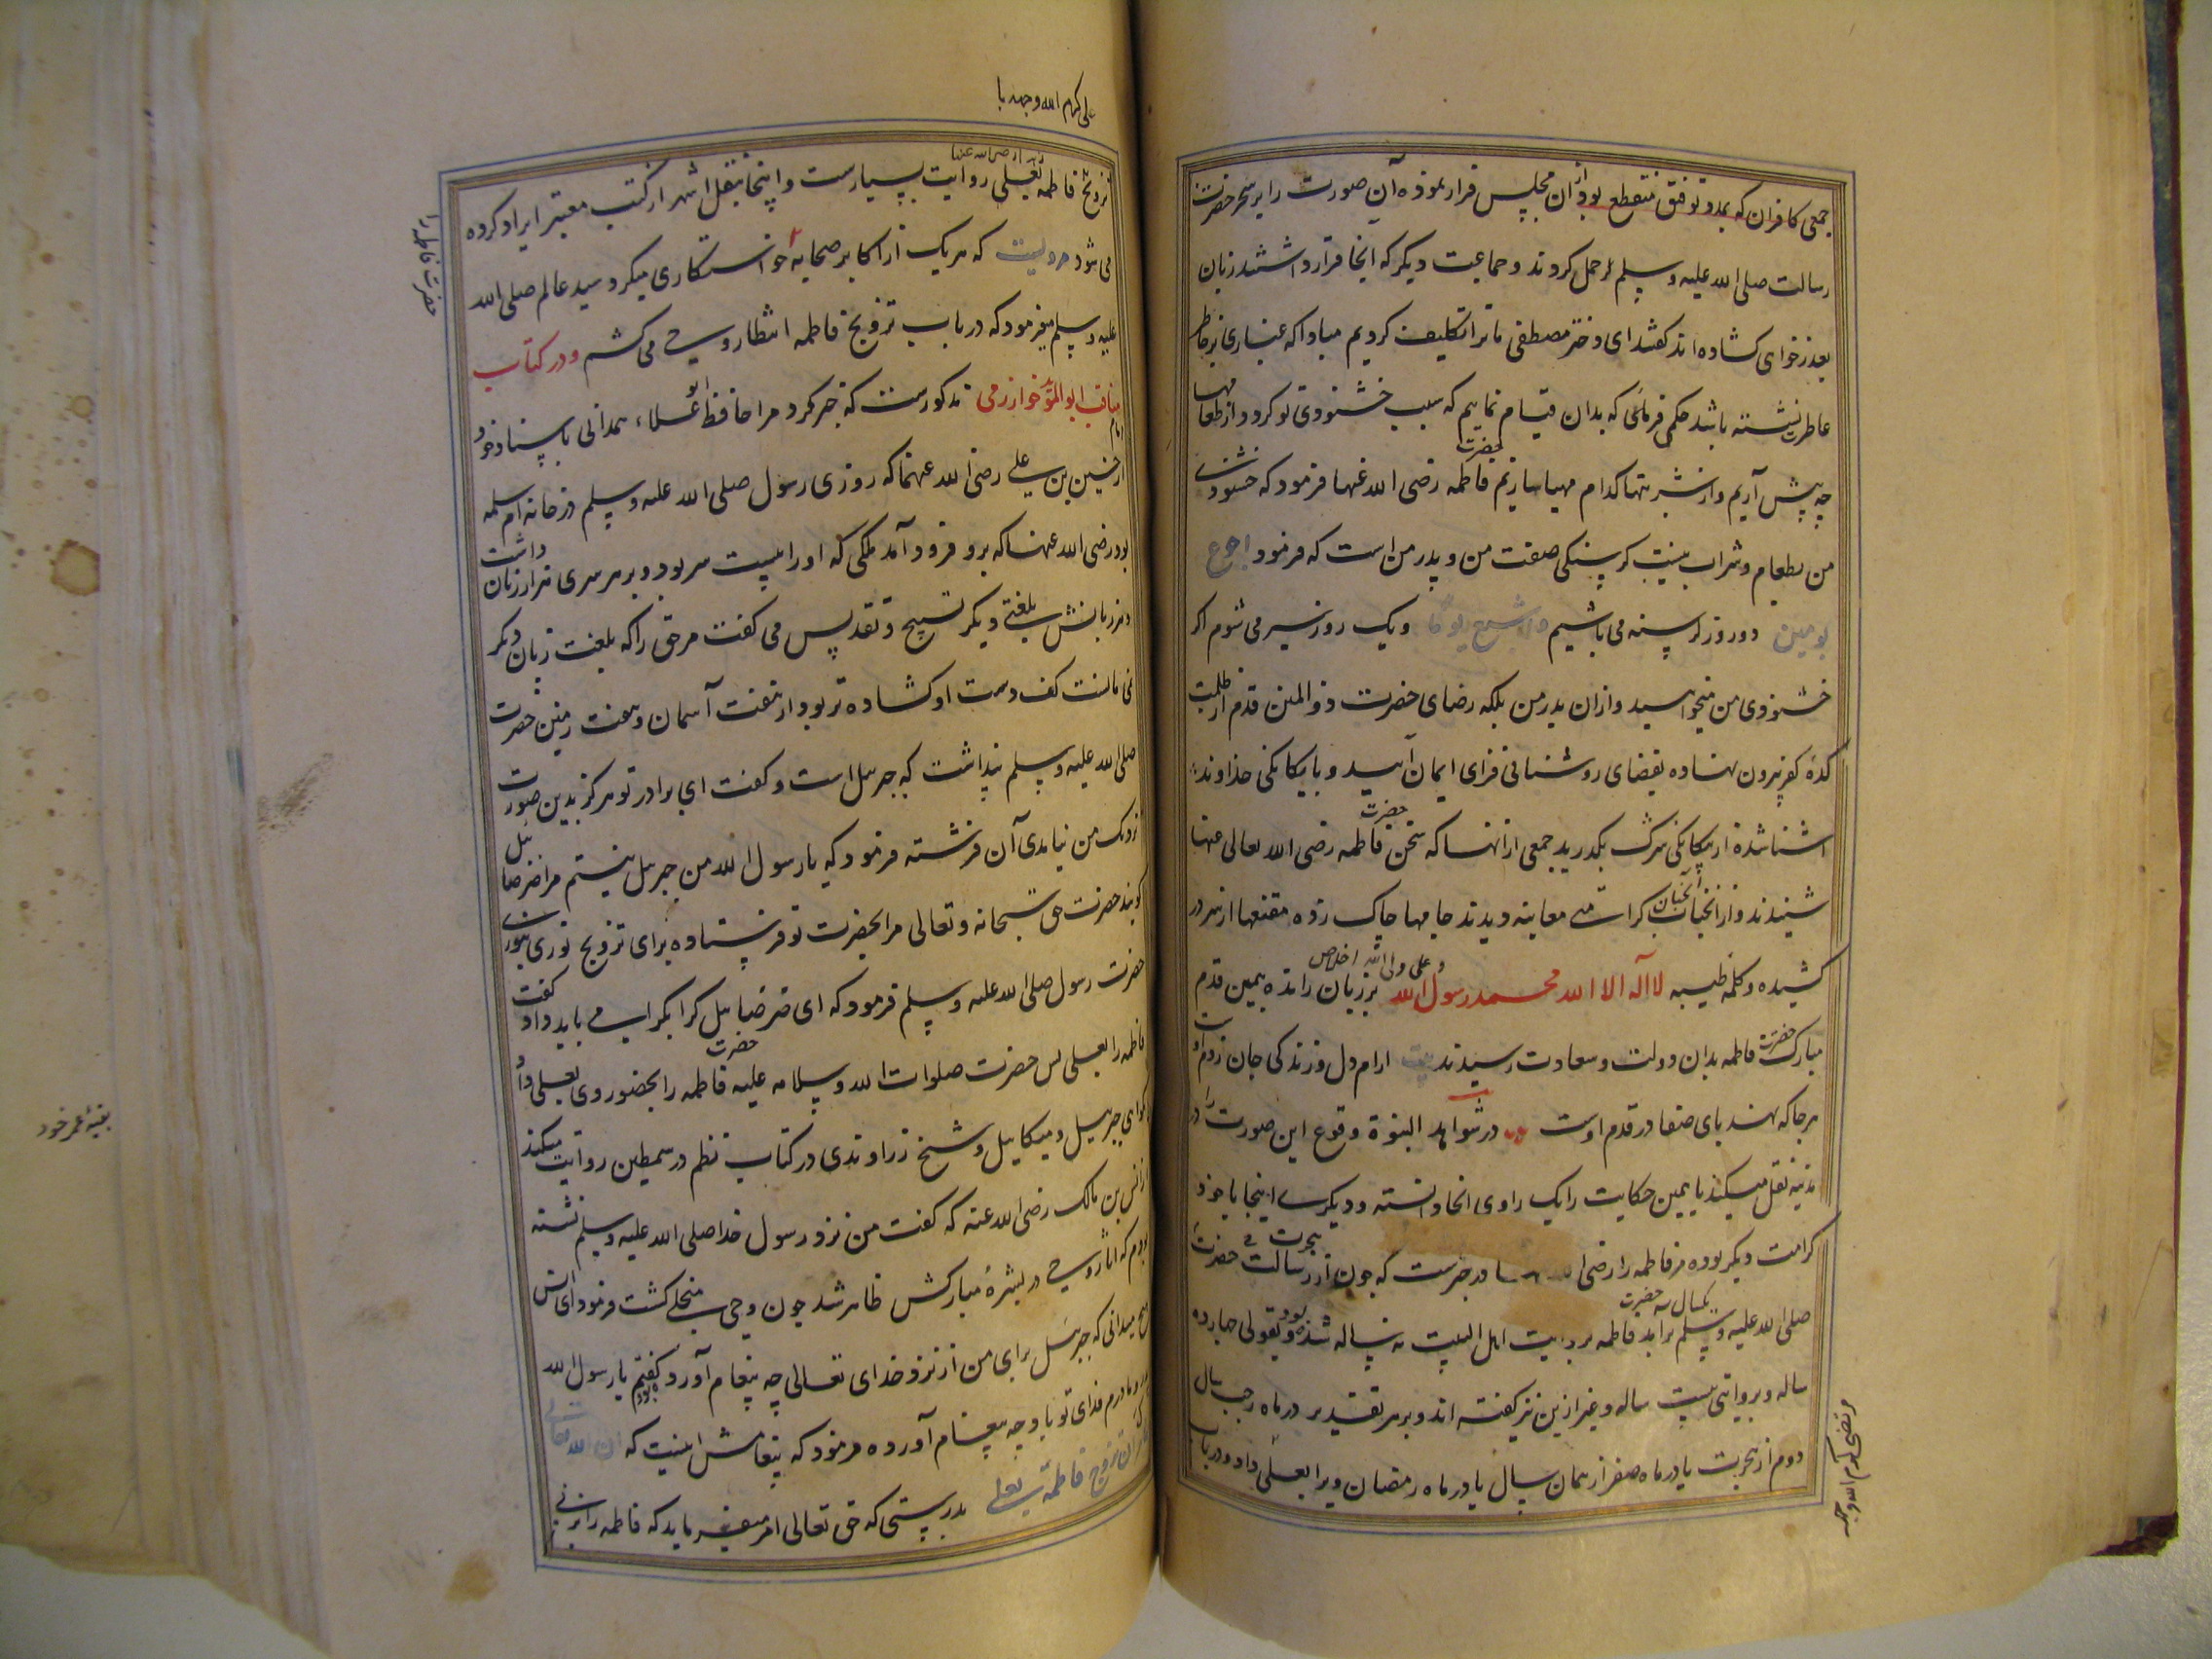 جمعی کافران که بمد و توفیق منقطع بود از آن مجلس فرار نموده آن صورت را بر سحر حضرت
رسالت صلی الله علیه وسلم حمل کردند و جماعت دیگر که آنجا قرار داشتند زبان
بعذرخواهی گشاده اند گفتند ای دختر مصطفی ما ترا تکلیف کردیم مبادا که غباری بر خاطر
عاطرت نشسته باشد حکمی فرمائی که بدان قیام نماییم که سبب خشنودی تو گردد و از طعامها
چه پیش آریم و از شربتها کدام مهیا سازیم حضرت فاطمه رضی الله عنها فرمود که خشنودی
من بطعام و شراب نیست گرسنگی صفت من و پدر من است که فرمود اجوع
یومین دو روز گرسنه می باشیم و اشبع یوما و یک روز سیر می شوم اگر
خشنودی من میخواهید و ازان پدر من بلکه رضای حضرت ذوالمنن قدم از ظلمت
کده کفر بیرون نهاده بفضای روشنائی فزای ایمان آیید و با یگانگی خداوند
آشنا شده از بیگانگی شرک بگذرید جمعی از آنها که سخن حضرت فاطمه رضی الله تعالی عنها
شنیدند و از آنجناب کرامتی معاینه دیدند جامها چاک زده مقنعها از سر در
کشیده و کلمه طیبه لا اله الا الله محمد رسول الله و علی ولی الله اخلاص بر زبان رانده بیمین قدم
مبارک حضرت فاطمه بدان دولت و سعادت رسیدند بیت آرام دل و زندگی جان ز دم اوست
هرجا که نهد پای صفا در قدم اوست در شواهد النبوة وقوع این صورت را در
مدینه نقل میکند یا همین حکایت را یک راوی آنجا دانسته و دیگری اینجا یا خود
کرامت دیگر بوده مر فاطمه را رضی در خبرست که چون از هجرت رسالت حضرت
صلی الله علیه وسلم یکسال برآمد حضرت فاطمه بروایت اهل البیت نه ساله شده بود و بقولی چهارده
ساله و بروایتی بیست ساله و غیر ازین نیز گفته اند و بر هر تقدیر در ماه رجب سال
دوم از هجرت یا در ماه صفر از همان سال یا در ماه رمضان ویرا بعلی داد و در باب
مرتضی کرم الله وجهه
علی کرم الله وجهه با
تزویج فاطمه رضی الله عنها بعلی روایت بسیارست و اینجا بنقل اشهر از کتب معتبر ایراد کرده
می شود مرویست که هر یک از اکابر صحابه خواستگاری میکرد سید عالم صلی الله
حضرت فاطمه را
علیه وسلم میفرمود که در باب تزویج فاطمه انتظار وحی می کشم و در کتاب
مناقب ابو المؤید خوارزمی مذکورست که خبر کرد مرا حافظ ابو العلاء همدانی باسناد خود
از امام حسین بن علی رضی الله عنهما که روزی رسول صلی الله علیه وسلم در خانه ام سلمه
بود رضی الله عنها که برو فرود آمد ملکی که او را بیست سر بود و بر هر سری هزار زبان داشت
و هر زبانش بلغتی دیگر تسبیح و تقدیس می گفت مر حق را که بلغت زبان دیگر
نمی مانست کف دست او گشاده تر بود از هفت آسمان و هفت زمین حضرت
صلی الله علیه وسلم پنداشت که جبرئیل است و گفت ای برادر تو هرگز بدین صورت
نزدیک من نیامدی آن فرشته فرمود که یا رسول الله من جبرئیل نیستم مرا ضرصائیل
گویند حضرت حق سبحانه و تعالی مرا بحضرت تو فرستاده برای تزویج نوری بنوری
حضرت رسول صلی الله علیه وسلم فرمود که ای ضرصائیل کرا بکرا می باید داد گفت
فاطمه را بعلی پس حضرت صلوات الله وسلامه علیه حضرت فاطمه را بحضور وی بعلی داد
بگواهی جبرئیل و میکائیل و شیخ زراوندی در کتاب نظم درر سمطین روایت میکند
از انس بن مالک رضی الله عنه که گفت من نزد رسول خدا صلی الله علیه وسلم نشسته
بودم که آثار وحی در بشره مبارکش ظاهر شد چون وحی منجلی گشت فرمود ای انس
هیچ میدانی که جبرئیل برای من از نزد خدای تعالی چه پیغام آورده بود گفتم یا رسول الله
پدر و مادرم فدای تو باد چه پیغام آورده فرمود که پیغامش اینست که ان الله تعالی
ان تزوج فاطمة بعلی بدرستی که حق تعالی امر میفرماید که فاطمه را بزنی
بقیهٔ عمر خود